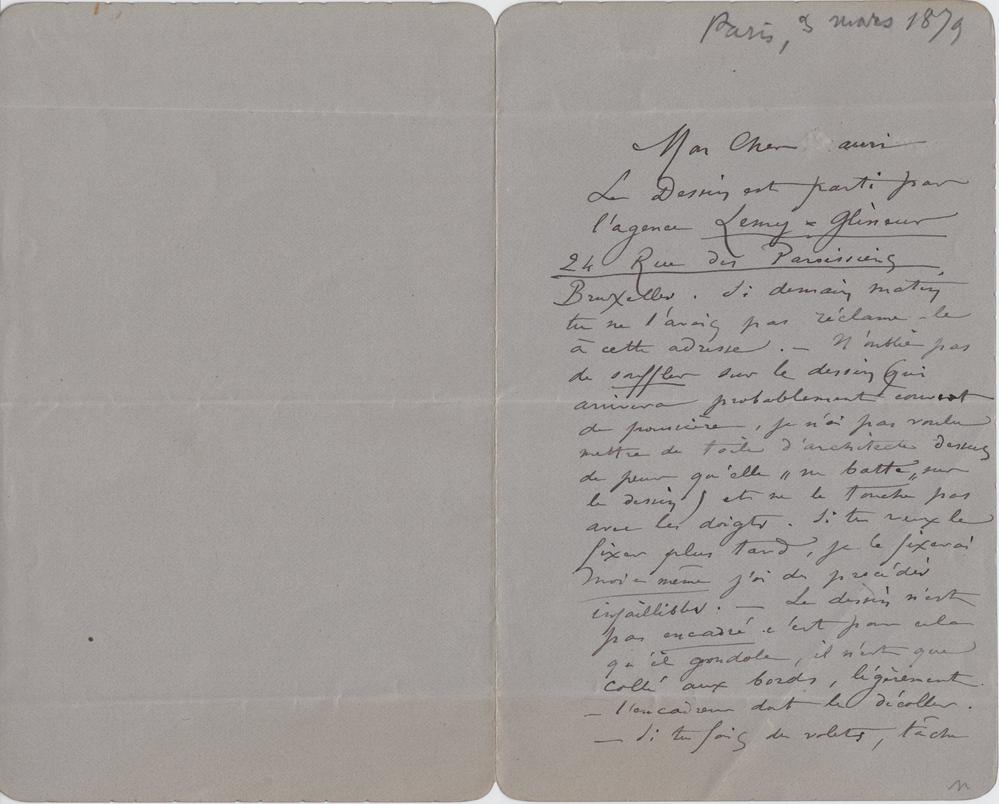 Paris, 3 mars 1879
Mon Cher ami
Le Dessin est parti par
l'agence Lemy = Glineur
24 Rue des Paroissiens
Bruxelles. Si demain matin
tu ne l'avais pas réclame-le
à cette adresse. — N'oublie pas
de souffler sur le dessin (qui
arrivera probablement couvert
de poussière, je n'ai pas voulu
mettre de toile d'architecte dessus
de peur qu'elle „ne batte„ sur
le dessin) et ne le touche pas
avec les doigts. Si tu veux le
fixer plus tard, je le fixerai
moi-même j'ai des procédés
infaillibles. — Le dessin n'est
pas encadré c'est pour cela
qu'il gondole, il n'est que
collé aux bords, légèrement.
– l'encadreur doit le décoller.
— Si tu fais des volets, tâche